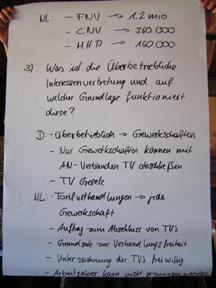 NL: - FNV → 1.2 mio
- CNV → 360.000
- MHP → 160.000
3) Was ist die Überbetriebliche
Interessenvertretung und auf
welcher Grundlage funktioniert
diese?
D: - Überbetrieblich → Gewerkschaften
- Nur Gewerkschaften können mit
AN-Verbänden TV abschließen
- TV Gesetz
NL: - Tarifverhandlungen → jede
Gewerkschaft
- Auftrag zum Abschluss von TV's
- Grundsatz zur Verhandlungsfreiheit
- Unterzeichnung der TV's freiwillig
- Arbeitgeber kann nicht gezwungen werden